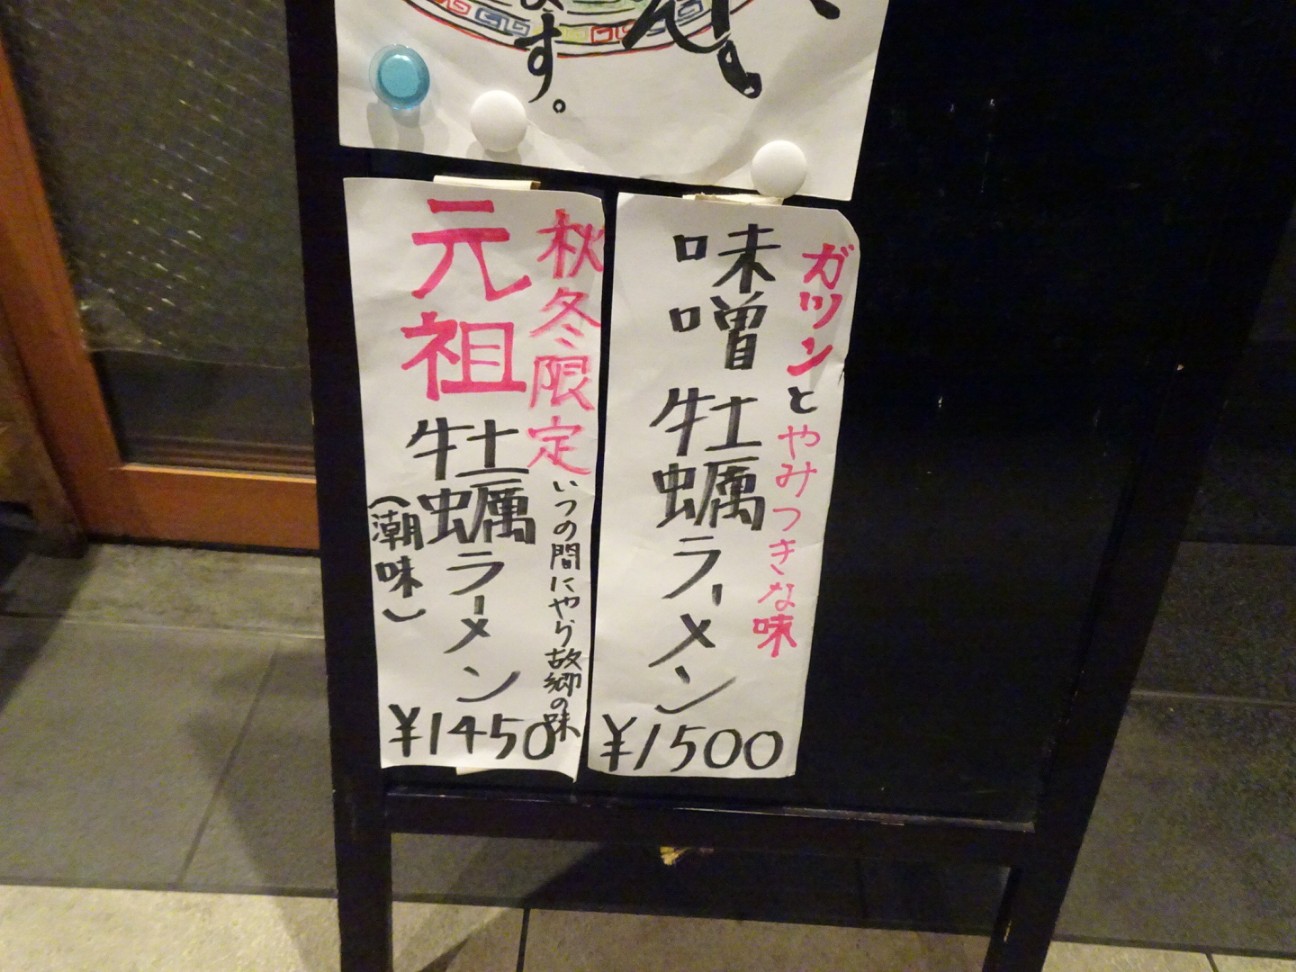 す。
ガツンとやみつきな味
味噌牡蠣ラーメン
¥1500
秋冬限定いつの間にやら故郷の味
元祖牡蠣ラーメン
(潮味)
¥1450